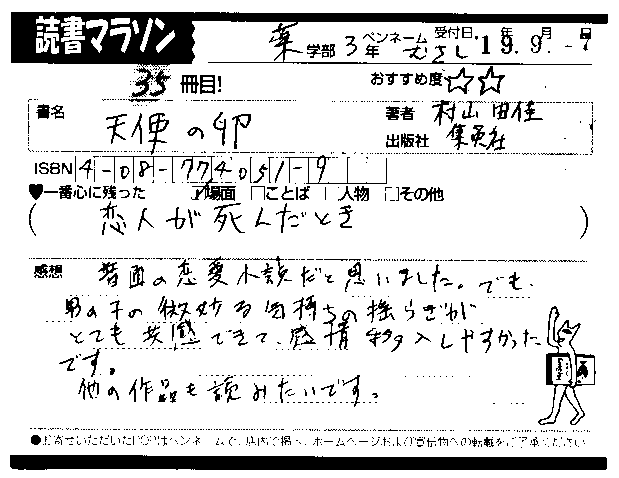 読書マラソン
薬学部 3年 ペンネーム むさし 受付日. 19年 9.月 -7日
35冊目! おすすめ度☆☆
書名 天使の卵
著者 村山由佳
出版社 集英社
ISBN 4-08-774051-9
♥一番心に残った 場面 ことば 人物 その他
(恋人が死んだとき)
感想 普通の恋愛小説だと思いました。でも、
男の子の微妙な気持ちの揺らぎが
とても共感できて、感情移入しやすかった
です。
他の作品も読みたいです。
●お寄せいただいた はペンネームで、店内で掲 、ホームページおよび宣伝物への転載をご了承ください